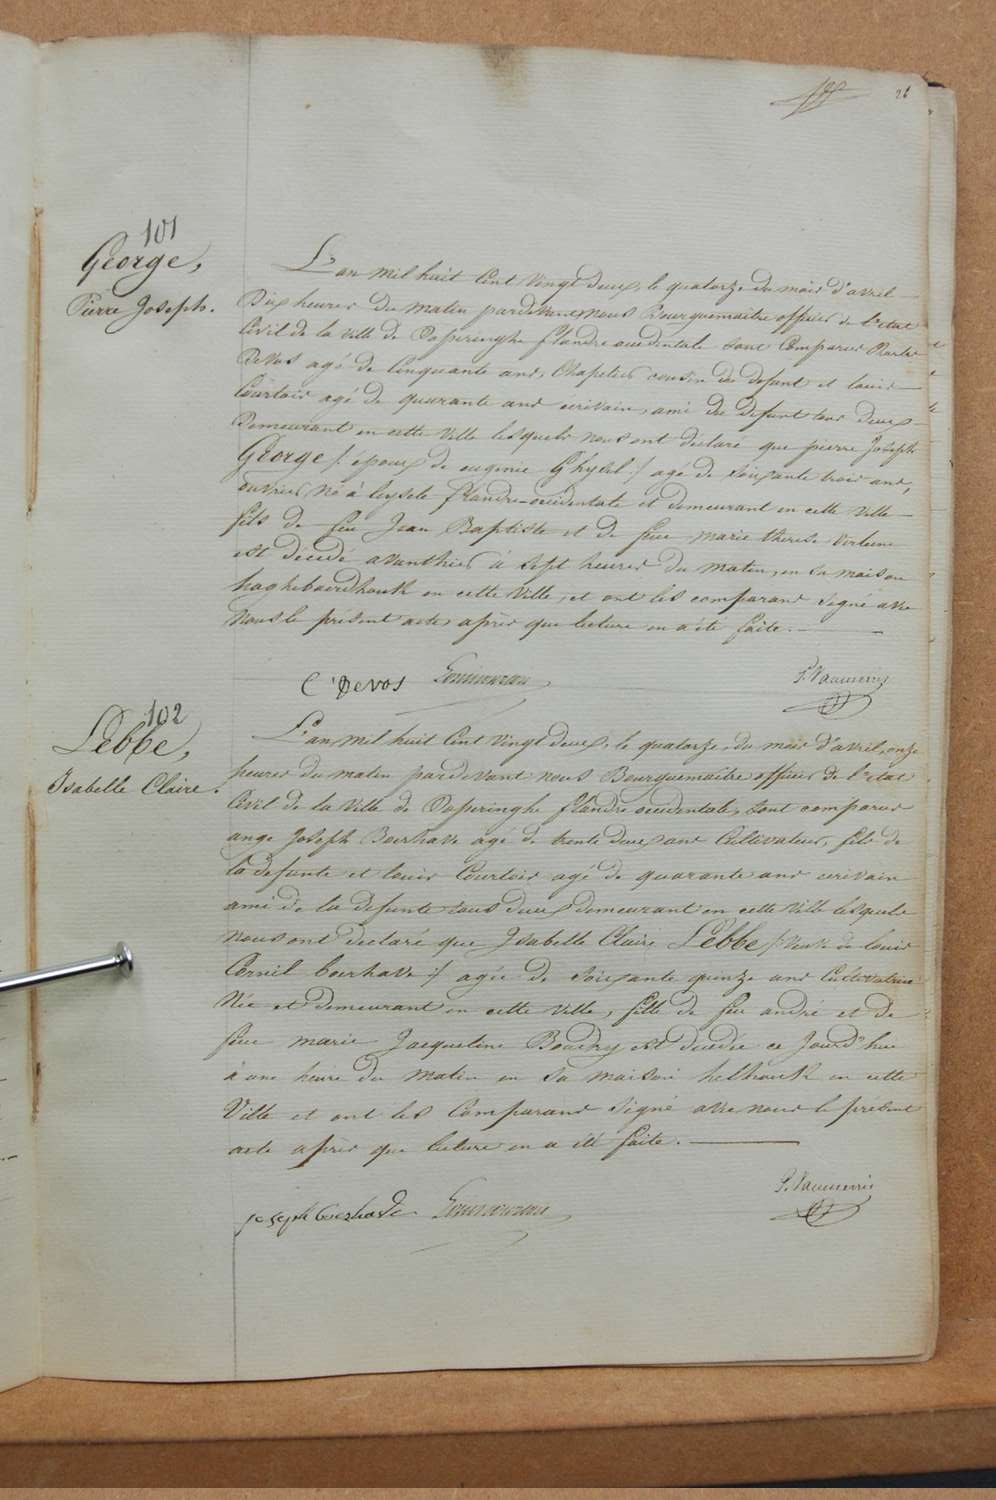 26
101
George,
Pierre Joseph.
L'an mil huit Cent vingt deux, le quatorze du mois d'avril
Dix heures du matin pardevant nous Bourguemaitre officier de l'etat
Civil de la Ville de Poperinghe flandre occidentale sont Comparus Charles
Devos agé de Cinquante ans, Chapelier cousin du defunt et louis
Courtois agé de quarante ans écrivain, ami du defunt tous deux
Demeurant en cette Ville lesquels nous ont déclaré que pierre Joseph
George /: époux de eugenie Ghysel :/ agé de soixante trois ans,
ouvrier, Né à leysele flandre-occidentale et demeurant en cette Ville
fils de feu Jean Baptiste et de feue marie therese
est décédé avanthier à sept heures du matin, en sa maison
en cette Ville, et ont les comparans signé avec
Nous le présent acte après que lecture en a été faite.
C. Devos
102
Lebbe,
Isabelle Claire.
L'an mil huit Cent vingt deux, le quatorze du mois d'avril, onze
heures du matin pardevant nous Bourguemaitre officier de l'etat
Civil de la Ville de Poperinghe flandre occidentale, sont comparus
ange Joseph Boerhave agé de trente deux ans Cultivateur, fils de
la defunte et louis Courtois agé de quarante ans ecrivain
ami de la defunte tous deux demeurant en cette Ville lesquels
Nous ont declaré que Isabelle Claire Lebbe /: veuve de louis
Corneil boerhave :/ agée de soixante quinze ans Cultivatrice
Née et demeurant en cette Ville, fille de feu andré et de
feue marie Jacqueline Boudry est decédée ce Jourd'hui
à une heure du matin en sa maison helhouk en cette
Ville et ont les Comparans signé avec nous le présent
acte après que lecture en a été faite.
Joseph Boerhave